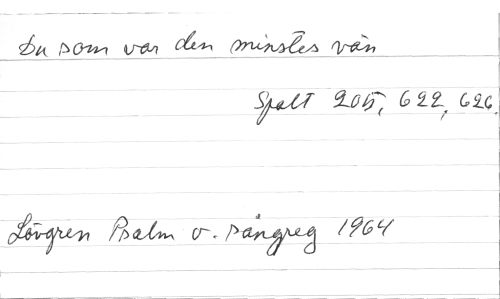 Du som var den minstes vän
Spalt 205, 622, 626.
Lövgren Psalm o. sångreg 1964